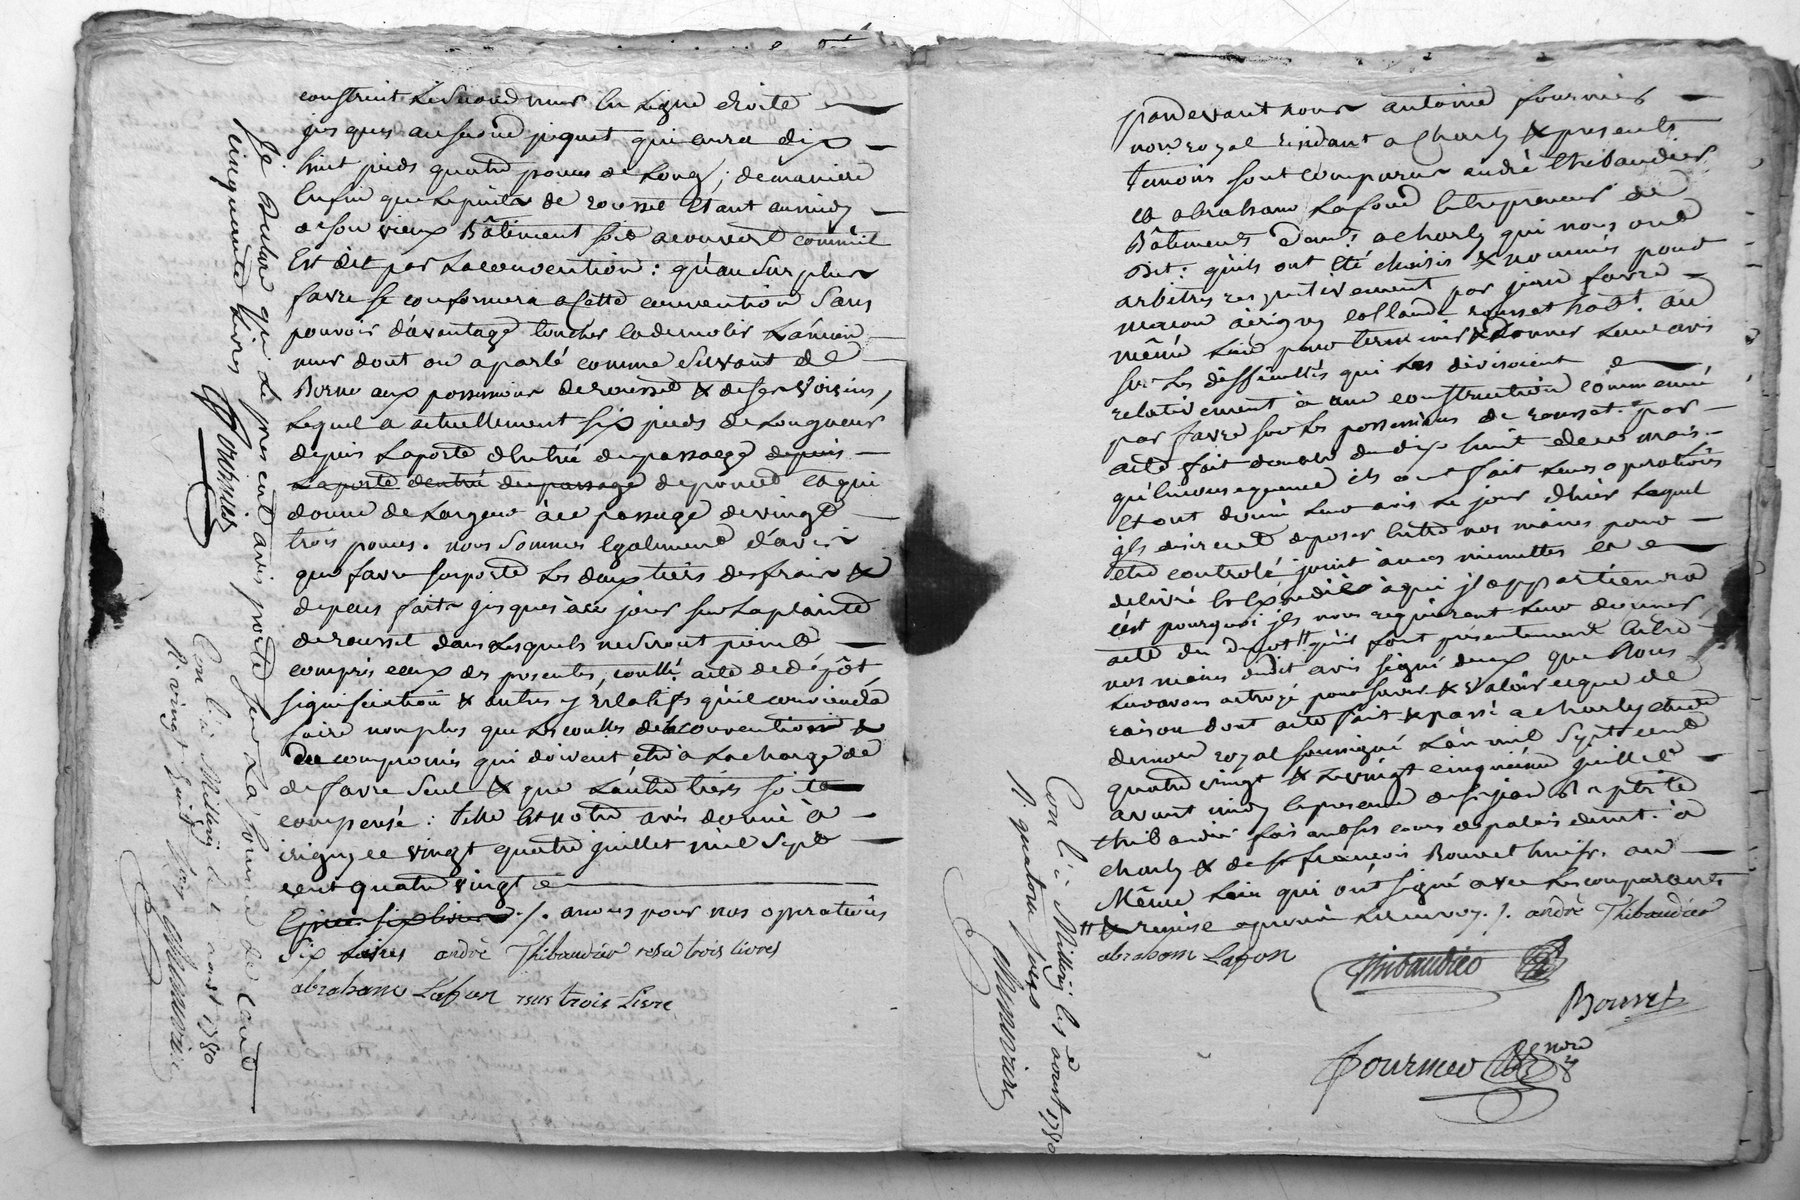 construit le second mur en ligne droite
jusques au second piquet qui aura dix
huit pieds quatre pouces de long, de maniere
enfin que le puits de roussel etant au midy
de son vieux Bâtiment soit a couvert comme il
Est dit par la convention : qu'au surplus
favre se conformera a cette convention sans
pouvoir d'avantage toucher et demolir l'ancien
mur dont on a parlé comme servant de
Borne aux possessions de roussel & de ses voisins,
lequel a actuellement six pieds de longueur
depuis la porte d'entrée du passage depuis
la porte dentrée du passage et qui
donne de largeur à ce passage de vingt
trois pouces. nous sommes egalement d'avis
que favre suporte les deux tiers des frais &
depens faits jusques à ce jour sur la plainte
de roussel dans lesquels ne seront point
compris ceux des presentes, contle. acte de dépôt
signification & autres y relatifs qu'il conviendra
faire non plus que les coutts de la convention &
du compromis qui doivent etre à la charge de
de favre seul & que l'autre tiers soit
compensé : telle est notre avis donné à
irigny ce vingt quatre juillet mil sept
cent quatre vingt
avons pour nos operations
six livres andré Thibaudier resu trois livres
abraham Lafon resus trois Livre
Je declare que le present avis porté sur la somme de cent
cinquante livres Fournier
Con l. à Millery le 1 aout 1780
par devant nous antoine fournier
nore. royal residant a Charly & presents
temoins sont comparus andré thibaudier
et abraham lafond entrepreneur de
Bâtiments demt. a charly qui nous ont
dit : qu'ils ont été choisis & nommés pour
arbitres respectivement par jean favre
maçon à irigny roussel hab.t au
même lieu pour terminer & donner leur avis
sur les difficultés qui les divisoient
relativement à une construction commencée
par favre sur les possessions de roussel. par
acte fait double du dix huit de ce mois.
qu'en consequence ils ont fait leurs operations
et ont donné leur avis le jour d'hier lequel
ils desirent deposer entre nos mains pour
etre controlé, joint à nos minuttes et
delivré expedié à qui il appartiendra
c'est pourquoi ils nous requierent leur donner
acte du depot qu'ils font presentement entre
nos mains dudit avis signé deux que nous
leur avons octroyé pour servir & valoir ce que de
raison dont acte fait & passé a charly etude
du nore. royal soussigné l'an mil sept cent
quatre vingt & le vingt cinquieme juillet
avant midy en presence de sr. jean Baptiste
thibaudier demt. à
charly & de sr. françois Bouvet huissr. au
Même lieu qui ont signé avec les comparants
andré Thibaudier
abraham Lafon
Thibaudier
Bouvet
Fournier nore
Con l. à Millery le 1 aout 1780
R. quatorze sous